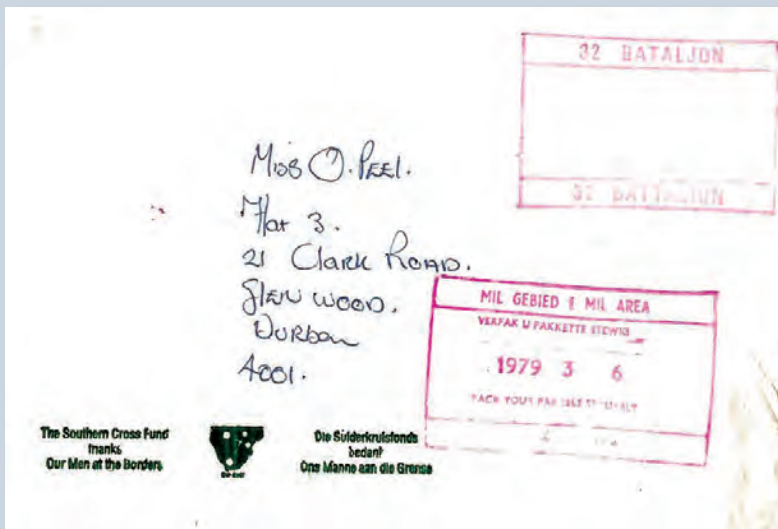 32 BATALJON
32 BATTALION
Miss O. PEEL.
Flat 3.
21 Clark ROAD.
GLEN WOOD.
DURBAN
4001.
MIL GEBIED & MIL AREA
VERPAK U PAKKETTE STEWIG
1979 3 6
PACK YOUR
The Southern Cross Fund
thanks
Our Men at the Borders
Die Suiderkruisfonds
bedank
Ons Manne aan die Grense